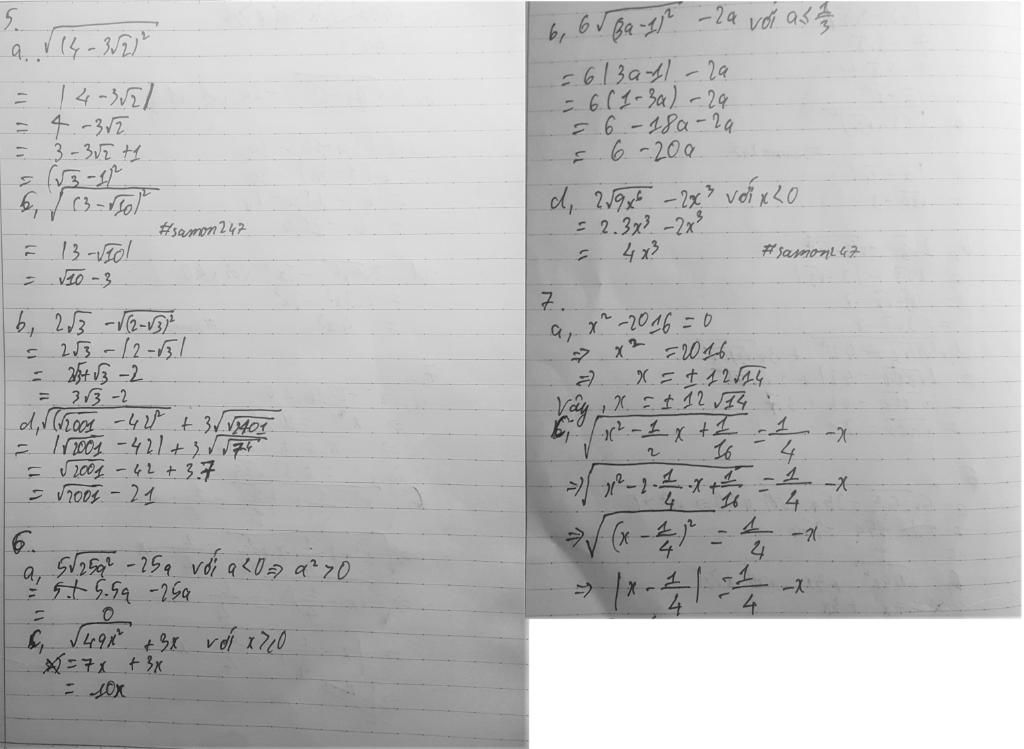 5.
a. √(4 - 3√2)²
= |4 - 3√2|
= 4 - 3√2
= 3 - 3√2 + 1
= (√3 - 1)²
b, √(3 - √10)²
#samon247
= |3 - √10|
= √10 - 3
b, 2√3 - √(2 - √3)²
= 2√3 - |2 - √3|
= 2√3 + √3 - 2
= 3√3 - 2
d, √(√2001 - 42)² + 3√√2401
= |√2001 - 42| + 3√√7⁴
= √2001 - 42 + 3.7
= √2001 - 21
6.
a, 5√25a² - 25a với a < 0 ⇒ a² > 0
= 5.5a - 25a
= 0
c, √49x² + 3x với x ≥ 0
= 7x + 3x
= 10x
b, 6√(3a - 1)² - 2a với a ≤ 1/3
= 6|3a - 1| - 2a
= 6(1 - 3a) - 2a
= 6 - 18a - 2a
= 6 - 20a
d, 2√9x⁶ - 2x³ với x < 0
= 2.3x³ - 2x³
= 4x³
#samon247
7.
a, x² - 2016 = 0
⇒ x² = 2016
⇒ x = ±12√14
Vậy, x = ±12√14
b, √x² - 1/2 x + 1/16 = 1/4 - x
⇒ √x² - 2 · 1/4 · x + 1/16 = 1/4 - x
⇒ √(x - 1/4)² = 1/4 - x
⇒ |x - 1/4| = 1/4 - x